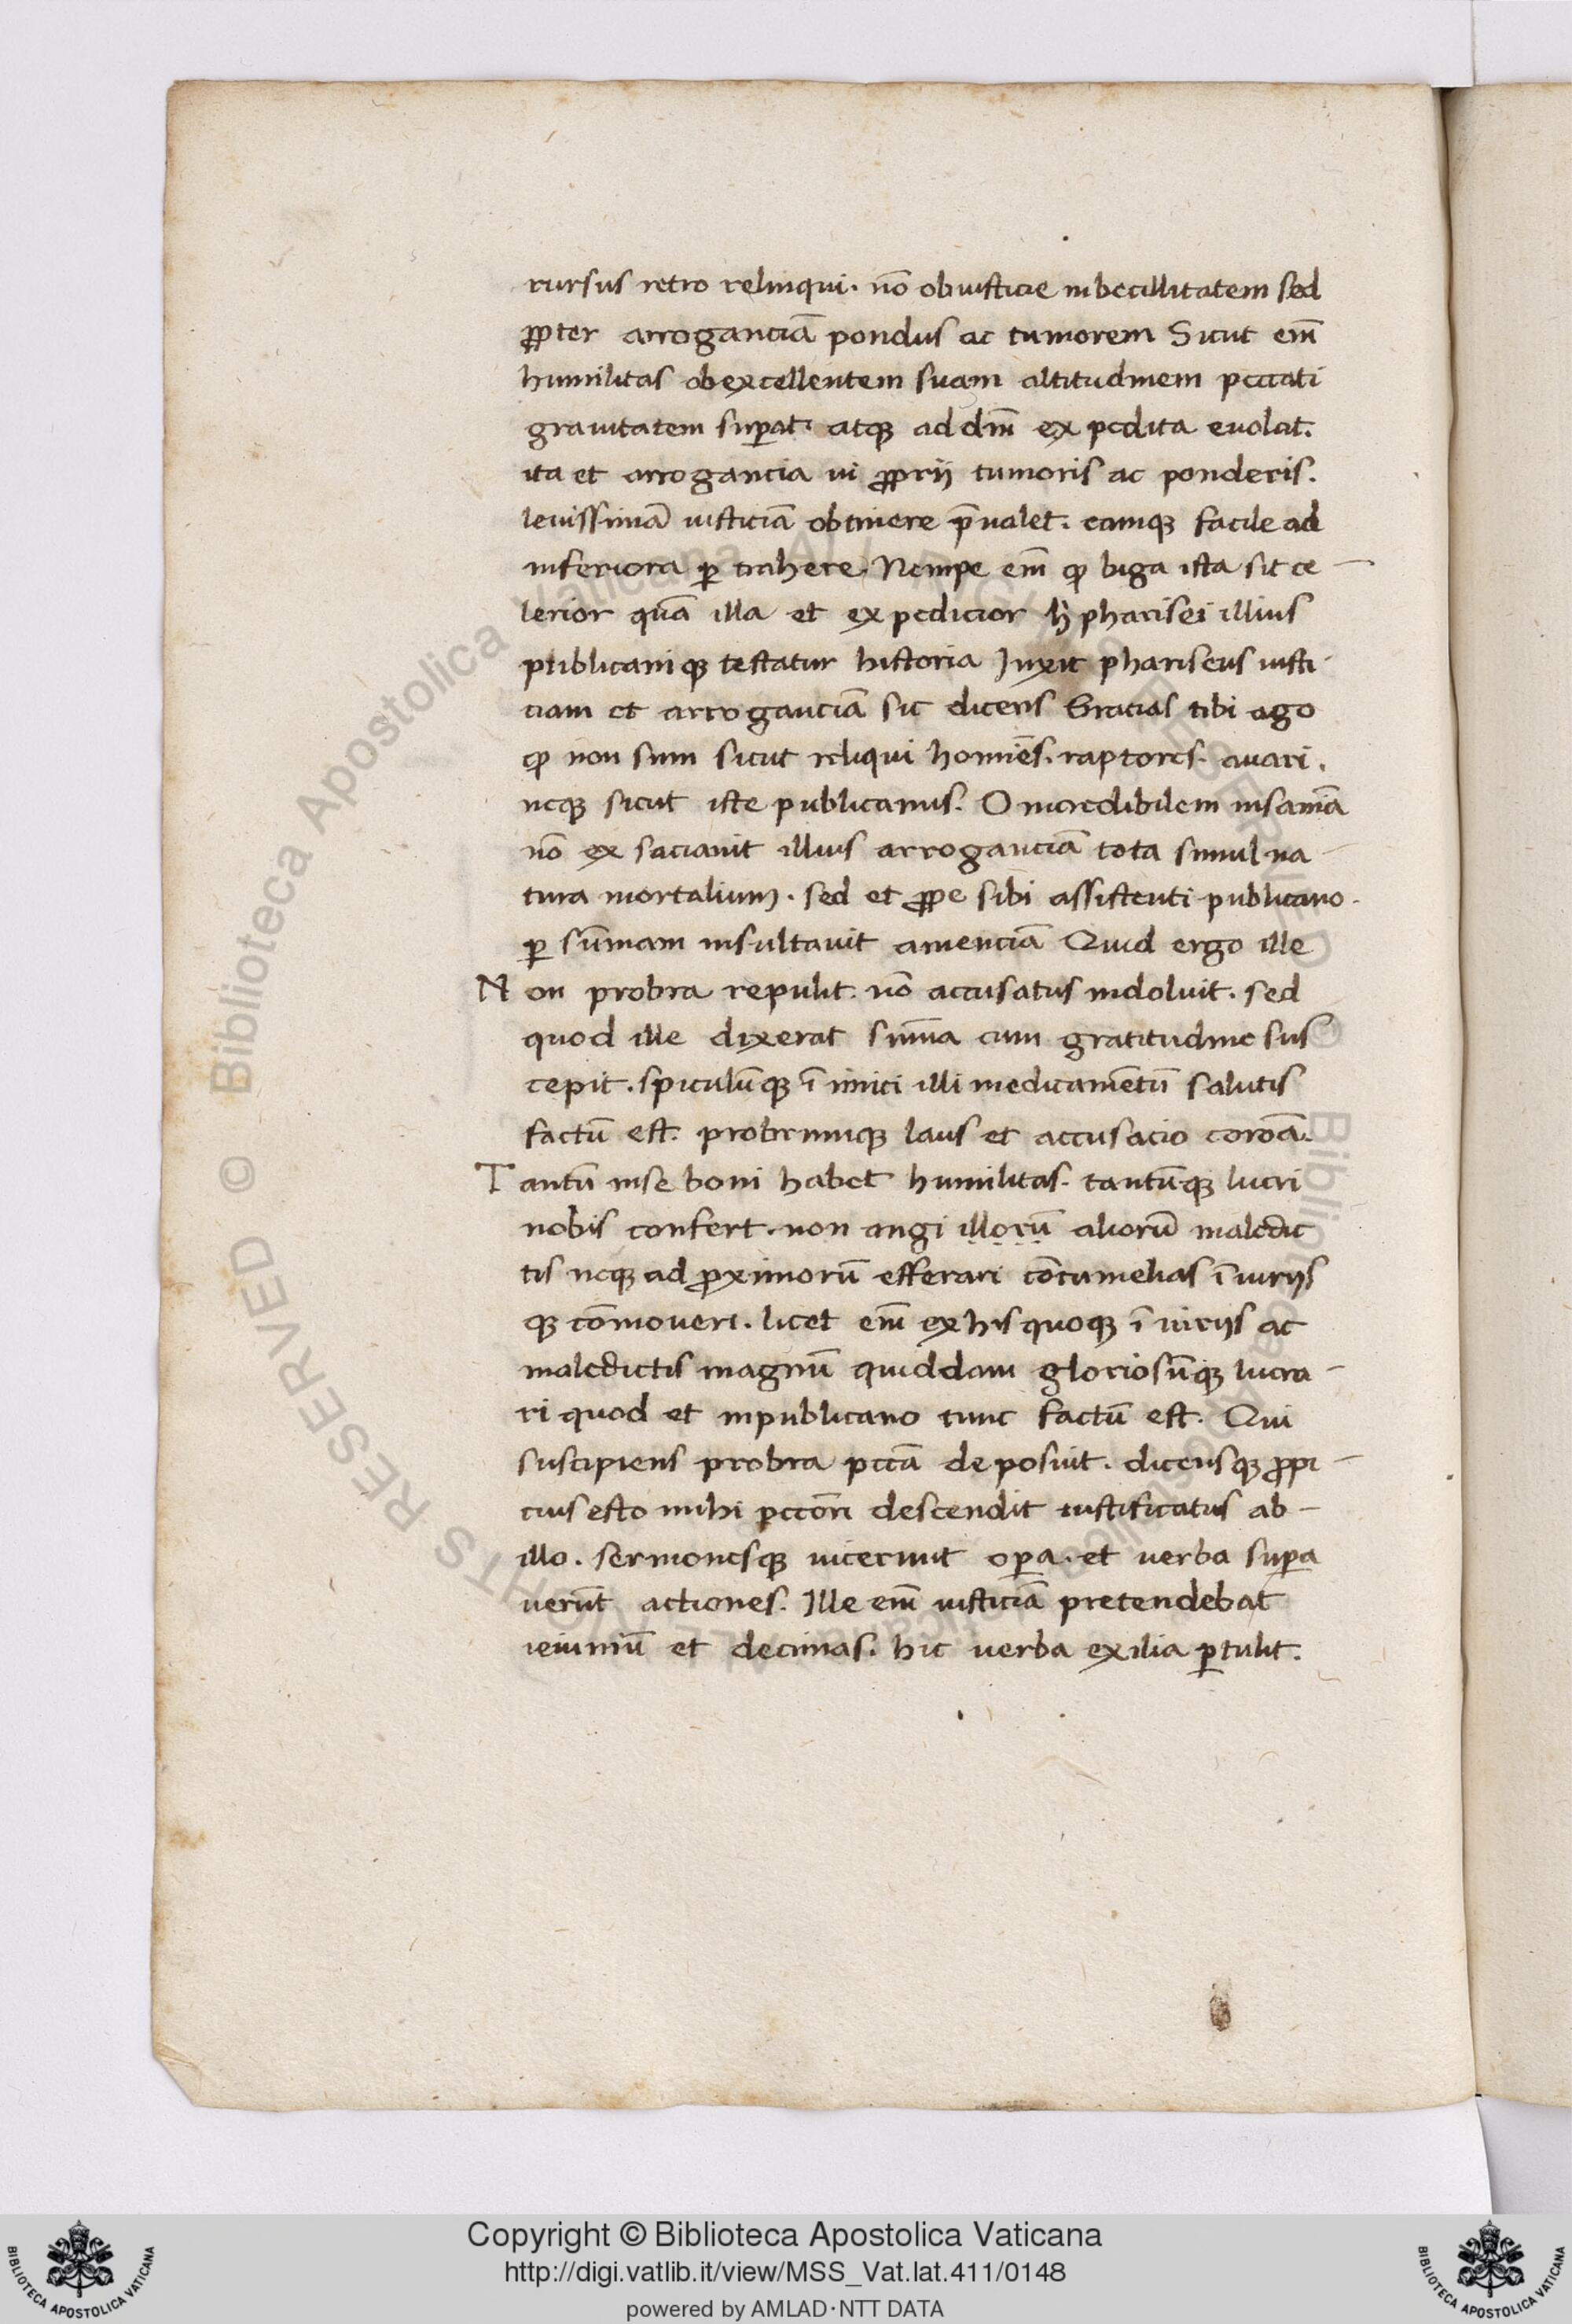 rursus retro relinqui. nō ob iusticie inbecillitatem sed
ꝓpter arroganciā pondus ac tumorem Sicut em̄
humilitas ob excellentem suam altitudinem pccati
grauitatem suꝑat. atqꝫ ad dm̄ ex pedita euolat.
ita et arrogancia ui ꝓprii tumoris ac ponderis.
leuissimā iusticiā obtinere p̄ualet. eamqꝫ facile ad
inferiora ꝑ trahere. Nempe em̄ ꝙ biga ista sit ce-
lerior quā illa et ex pedicior pharisei illius
publicani qꝫ testatur historia Iuxit phariseus iusti-
ciam et arroganciā sic dicens Gracias tibi ago
ꝙ non sum sicut reliqui homiēs. raptores. auari.
neqꝫ sicut iste publicanus. O incredibilem insaniā
nō ex saciauit illius arroganciā tota simul na-
tura mortalium. sed et ꝓpe sibi assistenti publicano.
ꝑ sūmam insultauit amenciā Quid ergo ille
N on probra repulit. nō accusatus indoluit. sed
quod ille dixerat sum̄a cum gratitudine sus
cepit. spiculūqꝫ ī imici illi medicamētū salutis
factū est. probrumqꝫ laus et accusacio coroā.
T antū inse boni habet humilitas. tantūqꝫ lucri
nobis confert. non angi illorū aliorū maledic
tis neqꝫ ad ꝓximorū efferari cōtumelias ī iuriis
qꝫ cōmoueri. licet em̄ ex his quoqꝫ ī iuriis ac
maledictis magnū quiddam gloriosūqꝫ lucra-
ri quod et inpublicano tunc factū est. Qui
suscipiens probra pccā de posuit. dicensqꝫ ꝓpi-
cius esto mihi pccōri descendit iustificatus ab-
illo. sermonesqꝫ uicerunt oꝑa. et uerba suꝑa
uerūt actiones. Ille em̄ iusticiā pretendebat
ieiuniū et decimas. hic uerba exilia ꝑtulit.
© Biblioteca Apostolica Vaticana ALL RIGHTS RESERVED ©
Copyright © Biblioteca Apostolica Vaticana
http://digi.vatlib.it/view/MSS_Vat.lat.411/0148
powered by AMLAD·NTT DATA
BIBLIOTECA APOSTOLICA VATICANA
BIBLIOTECA APOSTOLICA VATICANA